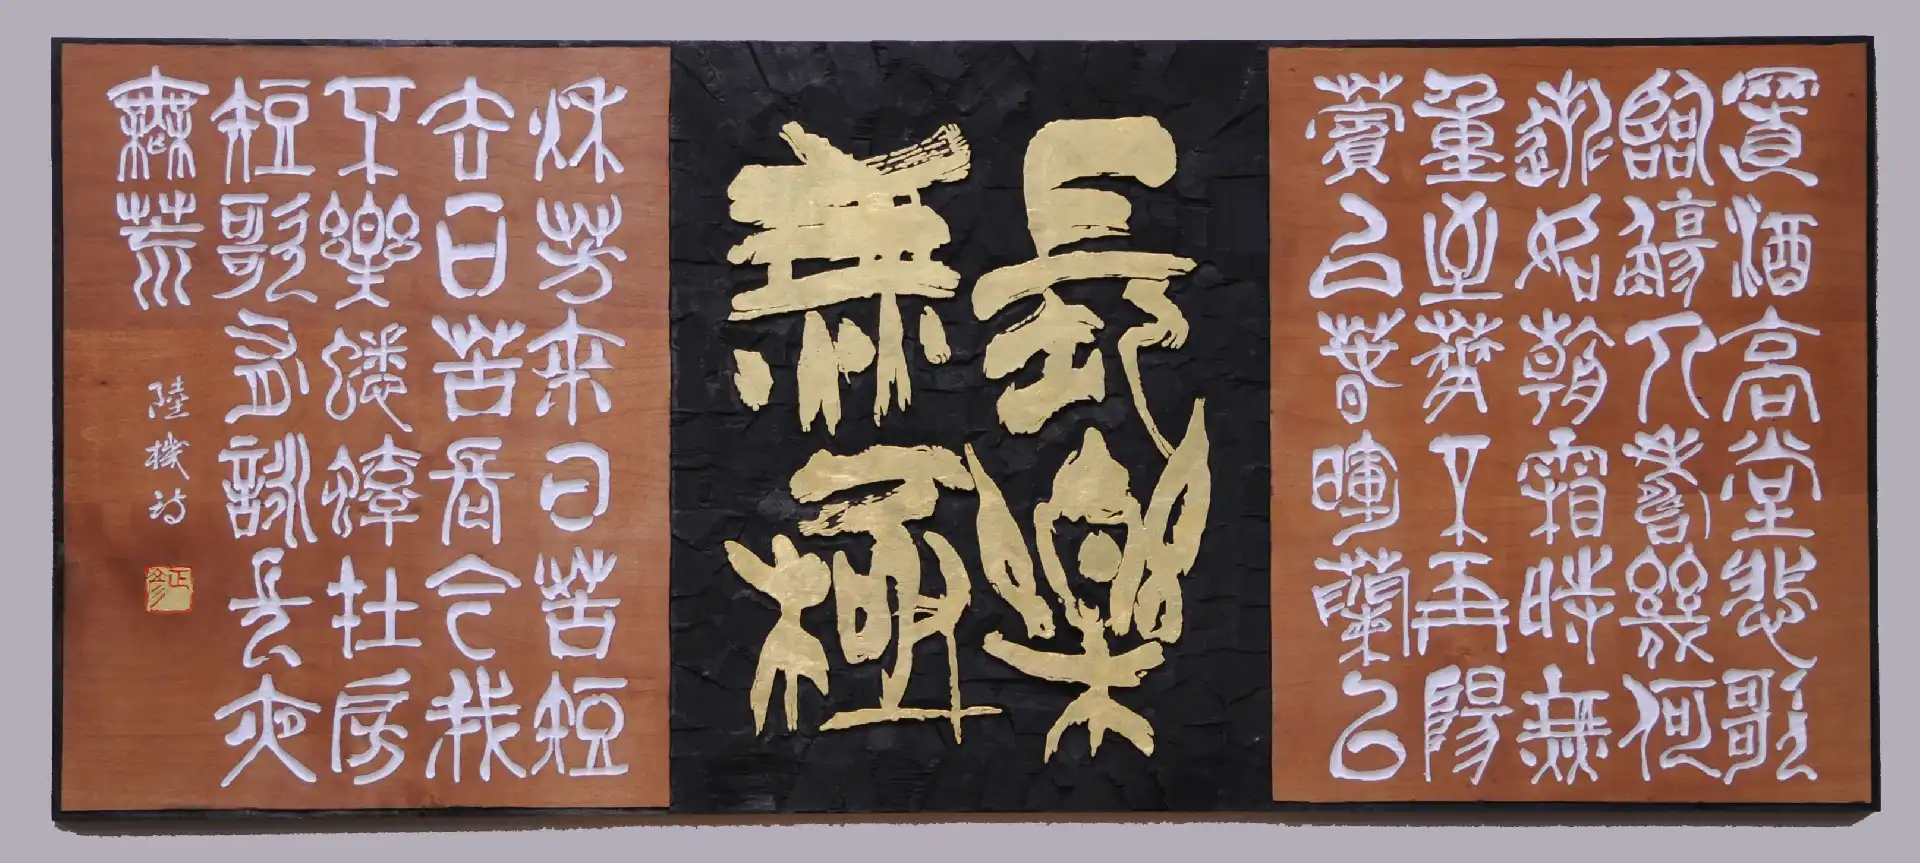 置酒高堂悲歌
臨觴人壽幾何
逝如朝霜時無
重至華不再陽
蘋以春暉蘭以
長樂
無極
秋芳来日苦短
去日苦長今我
不樂蟋蟀在房
短歌有詠長夜
無荒
陸機詩